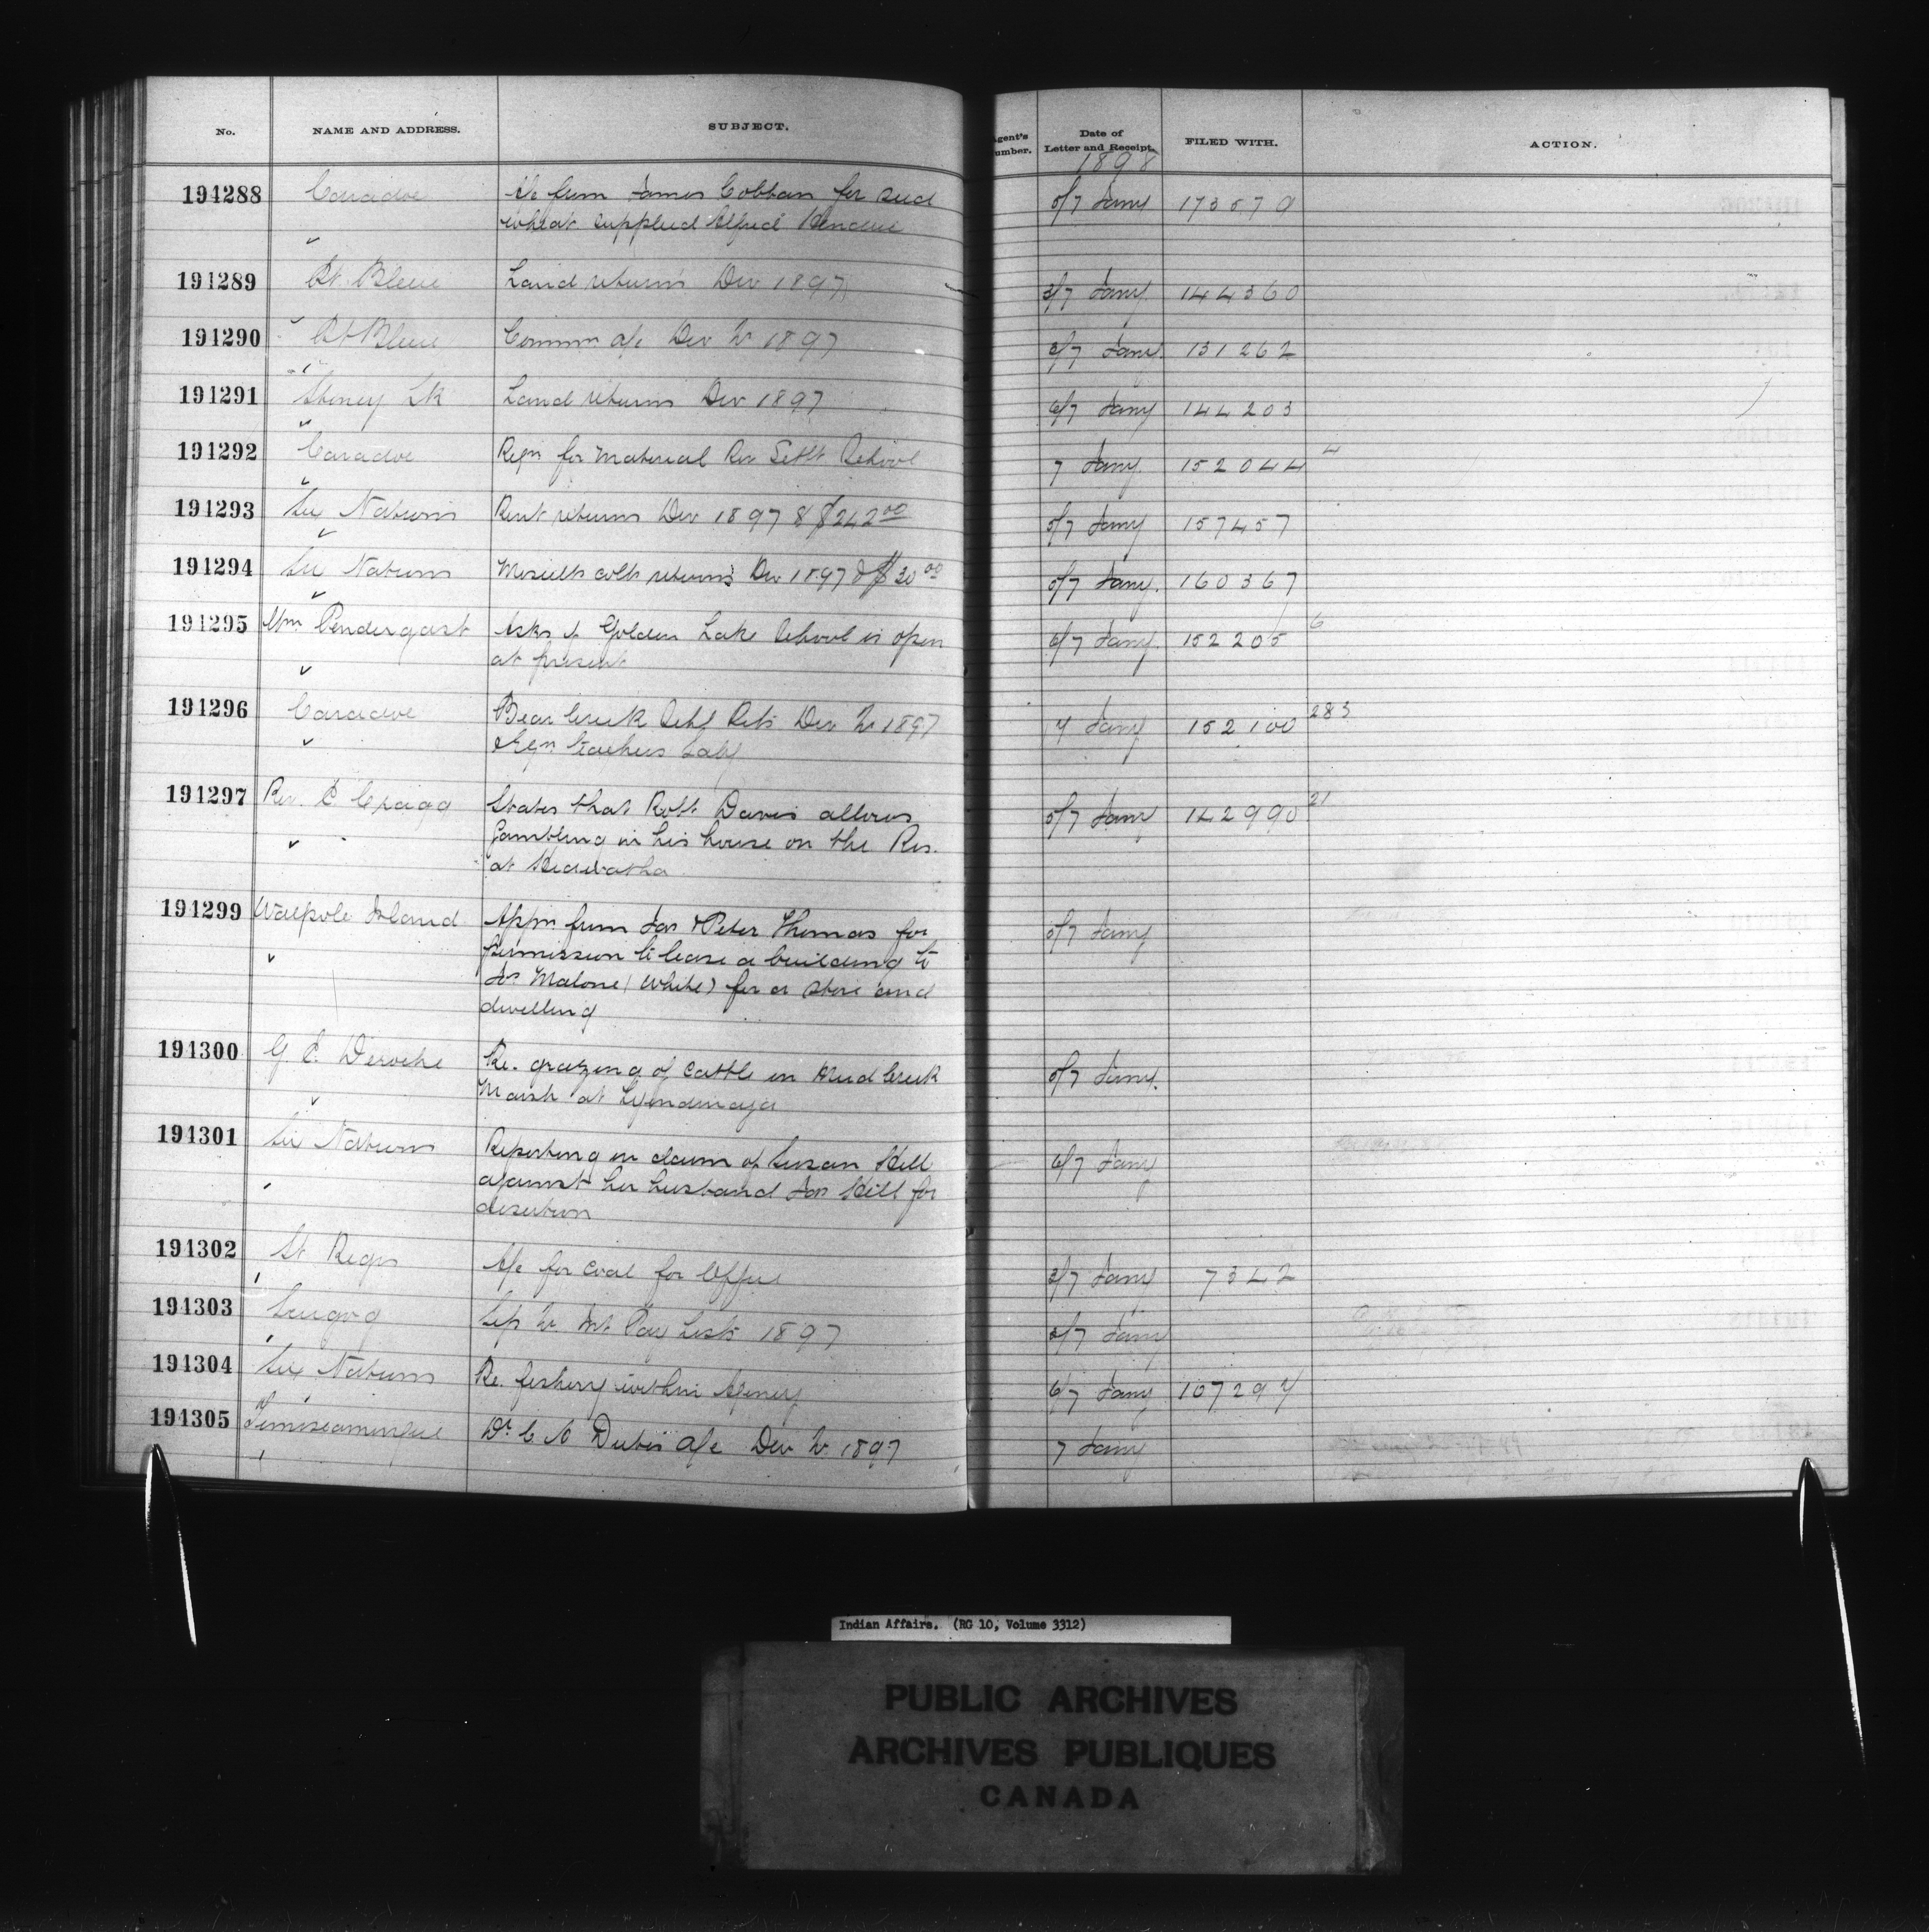 No. NAME AND ADDRESS. SUBJECT. Agent's Number. Date of Letter and Receipt. FILED WITH. ACTION.
1898
191288 Caradoc A/c from James Cobban for seed 5/7 Jany 173579
wheat supplied Alfred
191289 Pt. Bleue Land returns Dec 1897 3/7 Jany 144360
191290 Pt Bleue Commn a/c Dec Qr 1897 3/7 Jany 131262
191291 Stoney Pt Land returns Dec 1897 6/7 Jany 144203
191292 Caradoc Reqn for Material Riv Settt School 7 Jany 152044 4
191293 Six Nations Rent returns Dec 1897 & $242.00 5/7 Jany 157457
191294 Six Nations colls returns Dec 1897 & $30.00 5/7 Jany. 160367
191295 Wm Pendergast Asks if Golden Lake School is open 6/7 Jany. 152205 6
at present
191296 Caradoc Bear Creek Schl Rets Dec Qr 1897 7 Jany 152100 283
& Reqn teachers Saly
191297 Rev. E Cragg States that Robt Davis allows 5/7 Jany 142990 21
Gambling in his house on the Res.
at Hiawatha
191299 Walpole Island Appn from Jas & Peter Thomas for 5/7 Jany
permission to lease a building to
Jas Malone (White) for a store and
dwelling
191300 G E Deroche Re. grazing of cattle in Mud Creek 5/7 Jany.
Marsh at Tyendinaga
191301 Six Nations Reporting on claim of Susan Hill 6/7 Jany
against her husband Jas Hill for
desertion
191302 St Regis A/c for coal for Office 3/7 Jany 7342
191303 Scugog Sep Qr. Int Pay Lists 1897 5/7 Jany
191304 Six Nations Re. fishery within Agency 6/7 Jany 107297
191305 Temiscamingue Dr. C A Dubé a/c Dec Qr 1897 7 Jany
Indian Affairs. (RG 10, Volume 3312)
PUBLIC ARCHIVES
ARCHIVES PUBLIQUES
CANADA